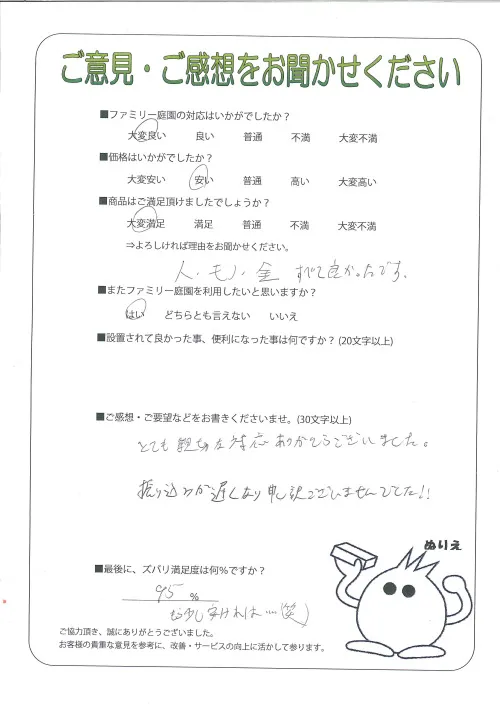 ご意見・ご感想をお聞かせください
■ファミリー庭園の対応はいかがでしたか？
大変良い 良い 普通 不満 大変不満
■価格はいかがでしたか？
大変安い 安い 普通 高い 大変高い
■商品はご満足頂けましたでしょうか？
大変満足 満足 普通 不満 大変不満
⇒よろしければ理由をお聞かせください。
人・モノ・金 すべて良かったです。
■またファミリー庭園を利用したいと思いますか？
はい どちらとも言えない いいえ
■設置されて良かった事、便利になった事は何ですか？(20文字以上)
■ご感想・ご要望などをお書きくださいませ。(30文字以上)
とても親切な対応ありがとうございました。
振り込みが遅くなり申し訳ございませんでした!!
ぬりえ
■最後に、ズバリ満足度は何％ですか？
95 %
もう少し安ければ…(笑)
ご協力頂き、誠にありがとうございました。
お客様の貴重な意見を参考に、改善・サービスの向上に活かして参ります。